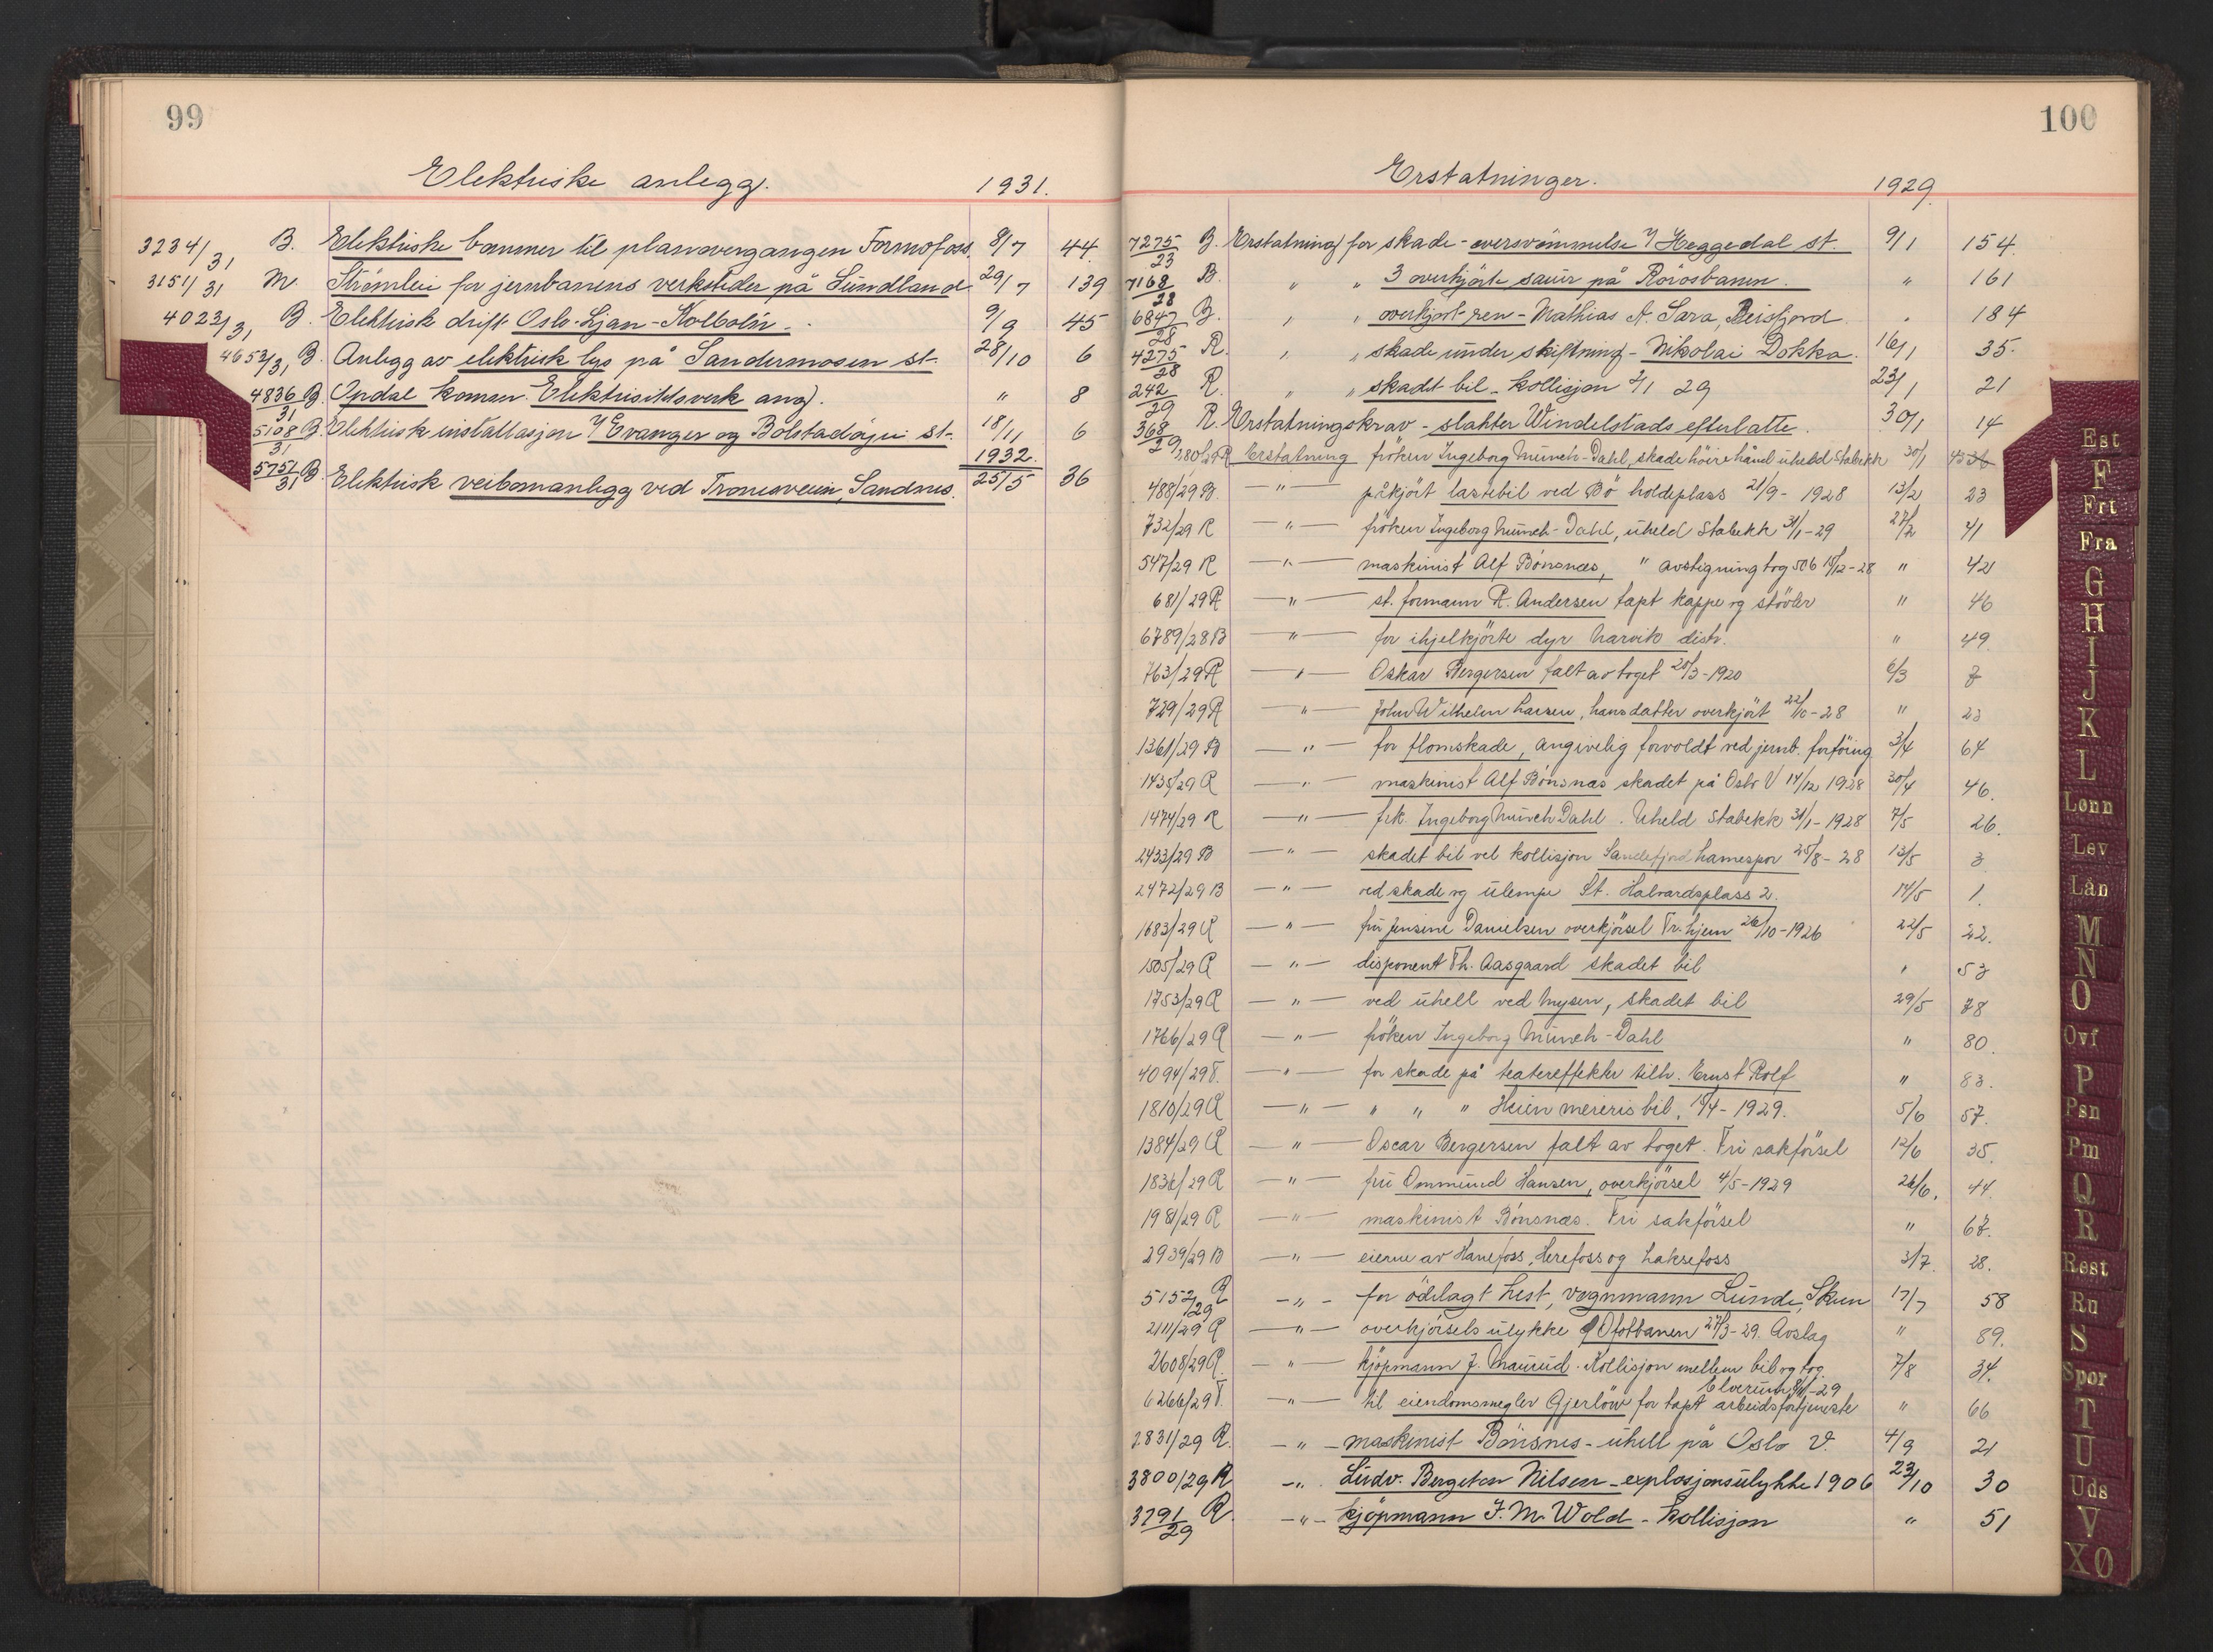 99
Elektriske anlegg. 1931.
3234/31 B. Elektriske bommer til planovergangen Formofoss. 8/7 44.
3151/31 M. Strömlev for jernbanens verksteder på Sundland 29/7 139
4023/31 B. Elektrisk drift Oslo-Ljan-Kolbotn. 9/9 45
4652/31 B. Anlegg av elektrisk lys på Sandermosen st. 28/10 6
4836/31 B. Opdal komm. Elektrisitetsverk ang. " 8
5108/31 B. Elektrisk installasjon Evanger og Bolstadöyri st. 18/11 6
1932.
5757/31 B. Elektrisk veibomanlegg ved Tronesveien, Sandnes. 25/5 36
100
Erstatninger. 1929.
7275/23 B. Erstatning for skade - oversvömmelse Heggedal st. 9/1 154.
7168/28 B. " " 3 overkjörte sauer på Rörosbanen. " 161
6847/28 B. " " overkjört ren - Mathias A. Sara, Beisfjord " 184
4275/28 R. " " skade under skiftning - Nikolai Dokka. 16/1 35.
242/29 R. " " skadet bil - kollisjon 2/1 29 23/1 21
368/29 R. Erstatningskrav - slakter Windelstads efterlatte. 30/1 14
280/29 R Erstatning fröken Ingeborg Münch-Dahl, skade höire hånd uheld Stabekk 30/1 36
488/29 B. -"- påkjört lastebil ved Bö holdeplass 21/9 - 1928 13/2 23
732/29 R -"- fröken Ingeborg Münch-Dahl, uheld Stabekk 31/1-29 27/2 41
547/29 R -"- maskinist Alf Bönsnæs, " avstigning tog 506 15/12-28 " 42
681/29 R -"- st. formann R. Andersen tapt kappe og stövler " 46
6789/28 B -"- for ihjelkjörte dyr Narvik distr. " 49.
763/29 R -"- Oskar Bergersen falt av toget 20/3-1920 6/3 7
729/29 R -"- John Wilhelm Larsen, hans datter overkjört 22/10-28 " 23
1361/29 B -"- for flomskade, angivelig forvoldt ved jernb. forföing 3/4 64
1435/29 R -"- maskinist Alf Bönsnæs skadet på Oslo V 14/12 1928 30/4 46.
1474/29 R -"- frk. Ingeborg Münch Dahl. Uheld Stabekk 31/1-1928 7/5 26.
2433/29 B -"- skadet bil vel kollisjon Sandefjord havnespor 25/8-28 13/5 3
2472/29 B -"- ved skade og ulempe St. Halvardsplass 2. 14/5 1.
1683/29 R -"- fru Jensine Danielsen overkjörsel Tr.hjem 26/10-1926 22/5 22.
1505/29 R -"- disponent Th. Aasgaard skadet bil " 53
1753/29 R -"- ved uhell ved Mysen, skadet bil 29/5 78
1766/29 R -"- fröken Ingeborg Münch-Dahl " 80.
4094/29 T. -"- for skade på teatereffekter tilh. Ernst Rolf " 83.
1810/29 R -"- " " " Heien meieris bil, 19/4-1929. 5/6 57.
1384/29 R -"- Oscar Bergersen falt av toget. Fri sakförsel 12/6 35.
1836/29 R -"- fru Ommund Hansen, overkjörsel 4/5-1929 26/6. 44.
1981/29 R -"- maskinist Bönsnæs. Fri sakförsel " 67.
2939/29 B -"- eierne av Hanefoss, Herefoss og Laksefoss 3/7. 28.
5152/29 R -"- for ödelagt hest, vognmann Lunde, Skien 17/7 58
2111/29 R -"- overkjörsels ulykke Ofotbanen 27/3-29. Avslag " 89.
2608/29 R. -"- kjöpmann J. Maurud. Kollisjon mellem bil og tog. 7/8 34.
Elverum -29
6266/29 T. -"- til eiendomsmegler Gjerlöw for tapt arbeidsfortjeneste " 66
2831/29 R. -"- maskinist Bönsnes - uhell på Oslo V. 4/9 21
3800/29 R -"- Ludv. Bergeton Nilsen - explosjonsulykke 1906 23/10 30
3791/29 R. -"- kjöpmann J. M. Wold - kollisjon " 51
Est
F
Frt
Fra
G
H
I
J
K
L
Lønn
Lev
Lån
M
N
O
Ovf
P
Psn
Pm
Q
R
Rest
Ru
S
Spor
T
U
Uds
V
XØ